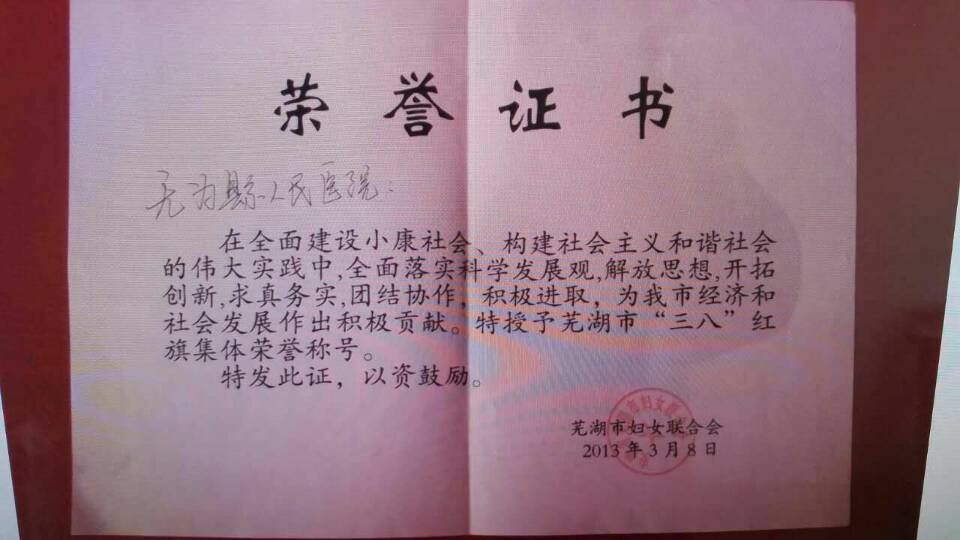 荣誉证书
无为县人民医院:
在全面建设小康社会、构建社会主义和谐社会
的伟大实践中,全面落实科学发展观,解放思想,开拓
创新,求真务实,团结协作,积极进取,为我市经济和
社会发展作出积极贡献。特授予芜湖市“三八”红
旗集体荣誉称号。
特发此证,以资鼓励。
芜湖市妇女联合会
2013年3月8日